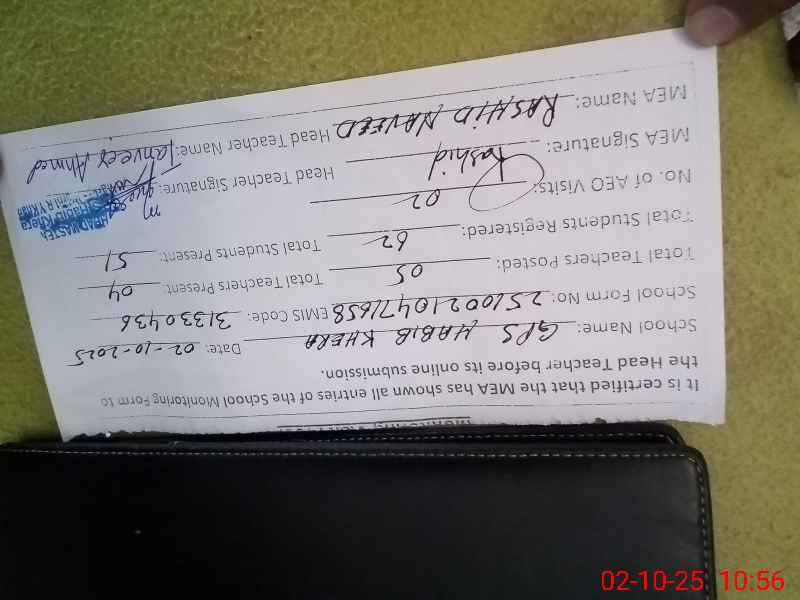 It is certified that the MEA has shown all entries of the School Monitoring Form to
the Head Teacher before its online submission.
School Name: GPS HABIB KHERA Date: 02-10-2025
School Form No: 25100210471658 EMIS Code: 31330436
Total Teachers Posted: 05 Total Teachers Present: 04
Total Students Registered: 62 Total Students Present: 51
No. of AEO Visits: 02
MEA Signature: Rashid Head Teacher Signature:
MEA Name: RASHID NAVEED Head Teacher Name: Tanveer Ahmed
HEADMASTER
02-10-25 10:56